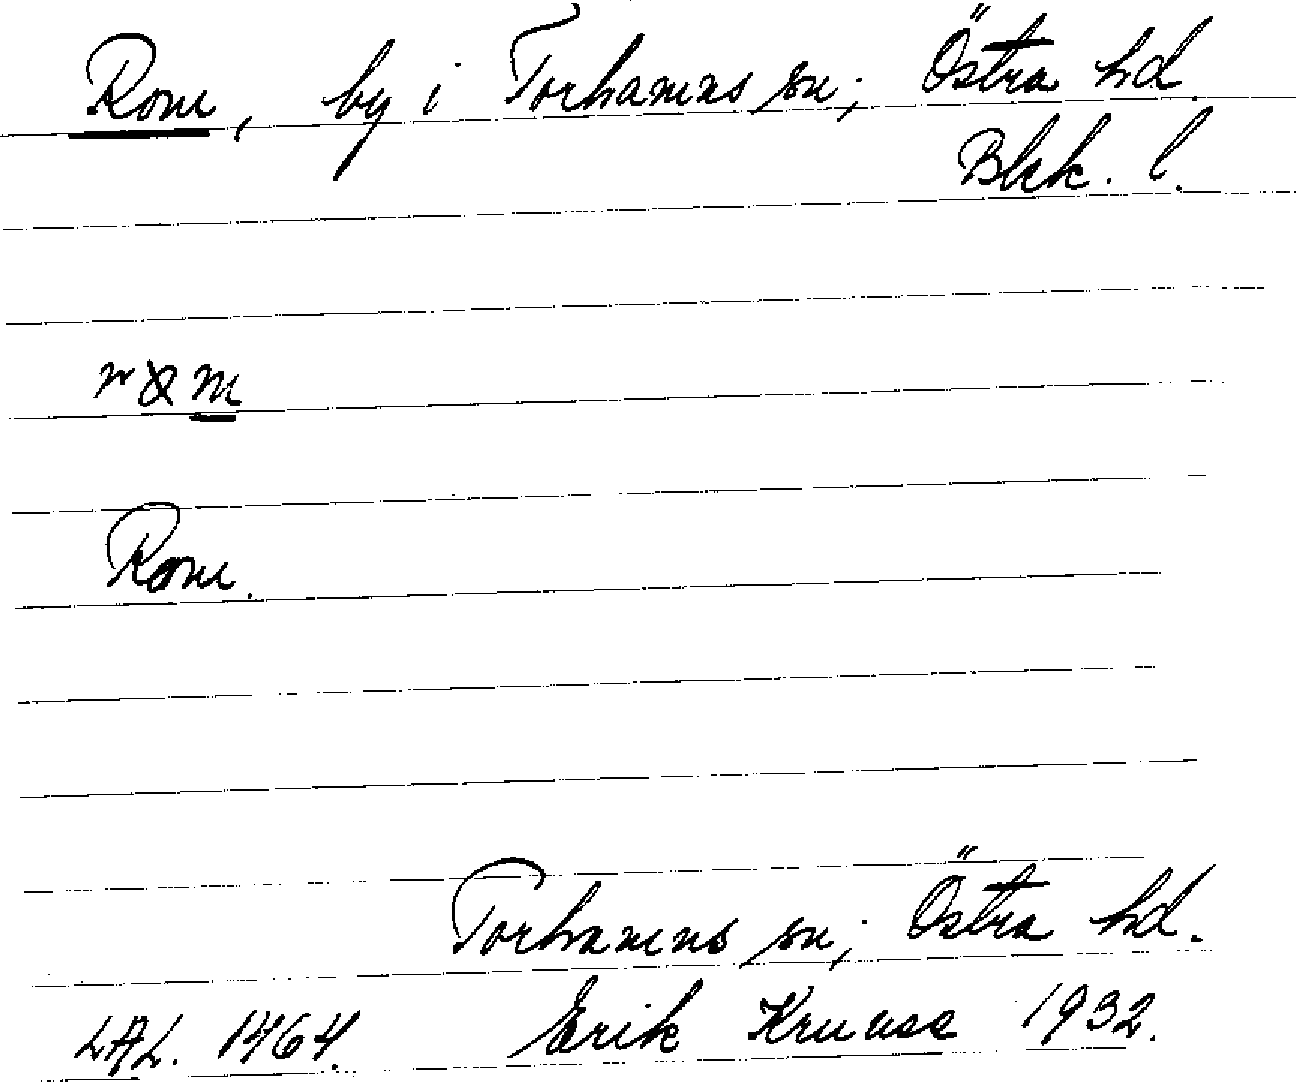 Rom, by i Torhamns sn; Östra hd.
Blek. l.
Rom.
Torhamns sn; Östra hd.
LAL. 1464. Erik Kruuse 1932.